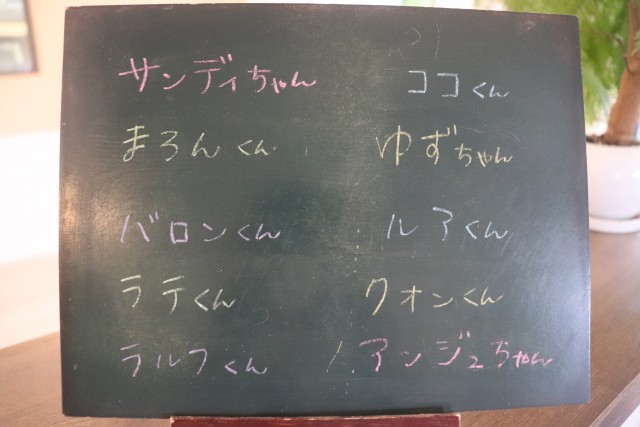 サンディちゃん
まろんくん
バロンくん
ラテくん
ラルフくん
ココくん
ゆずちゃん
ルアくん
クオンくん
アンジュちゃん